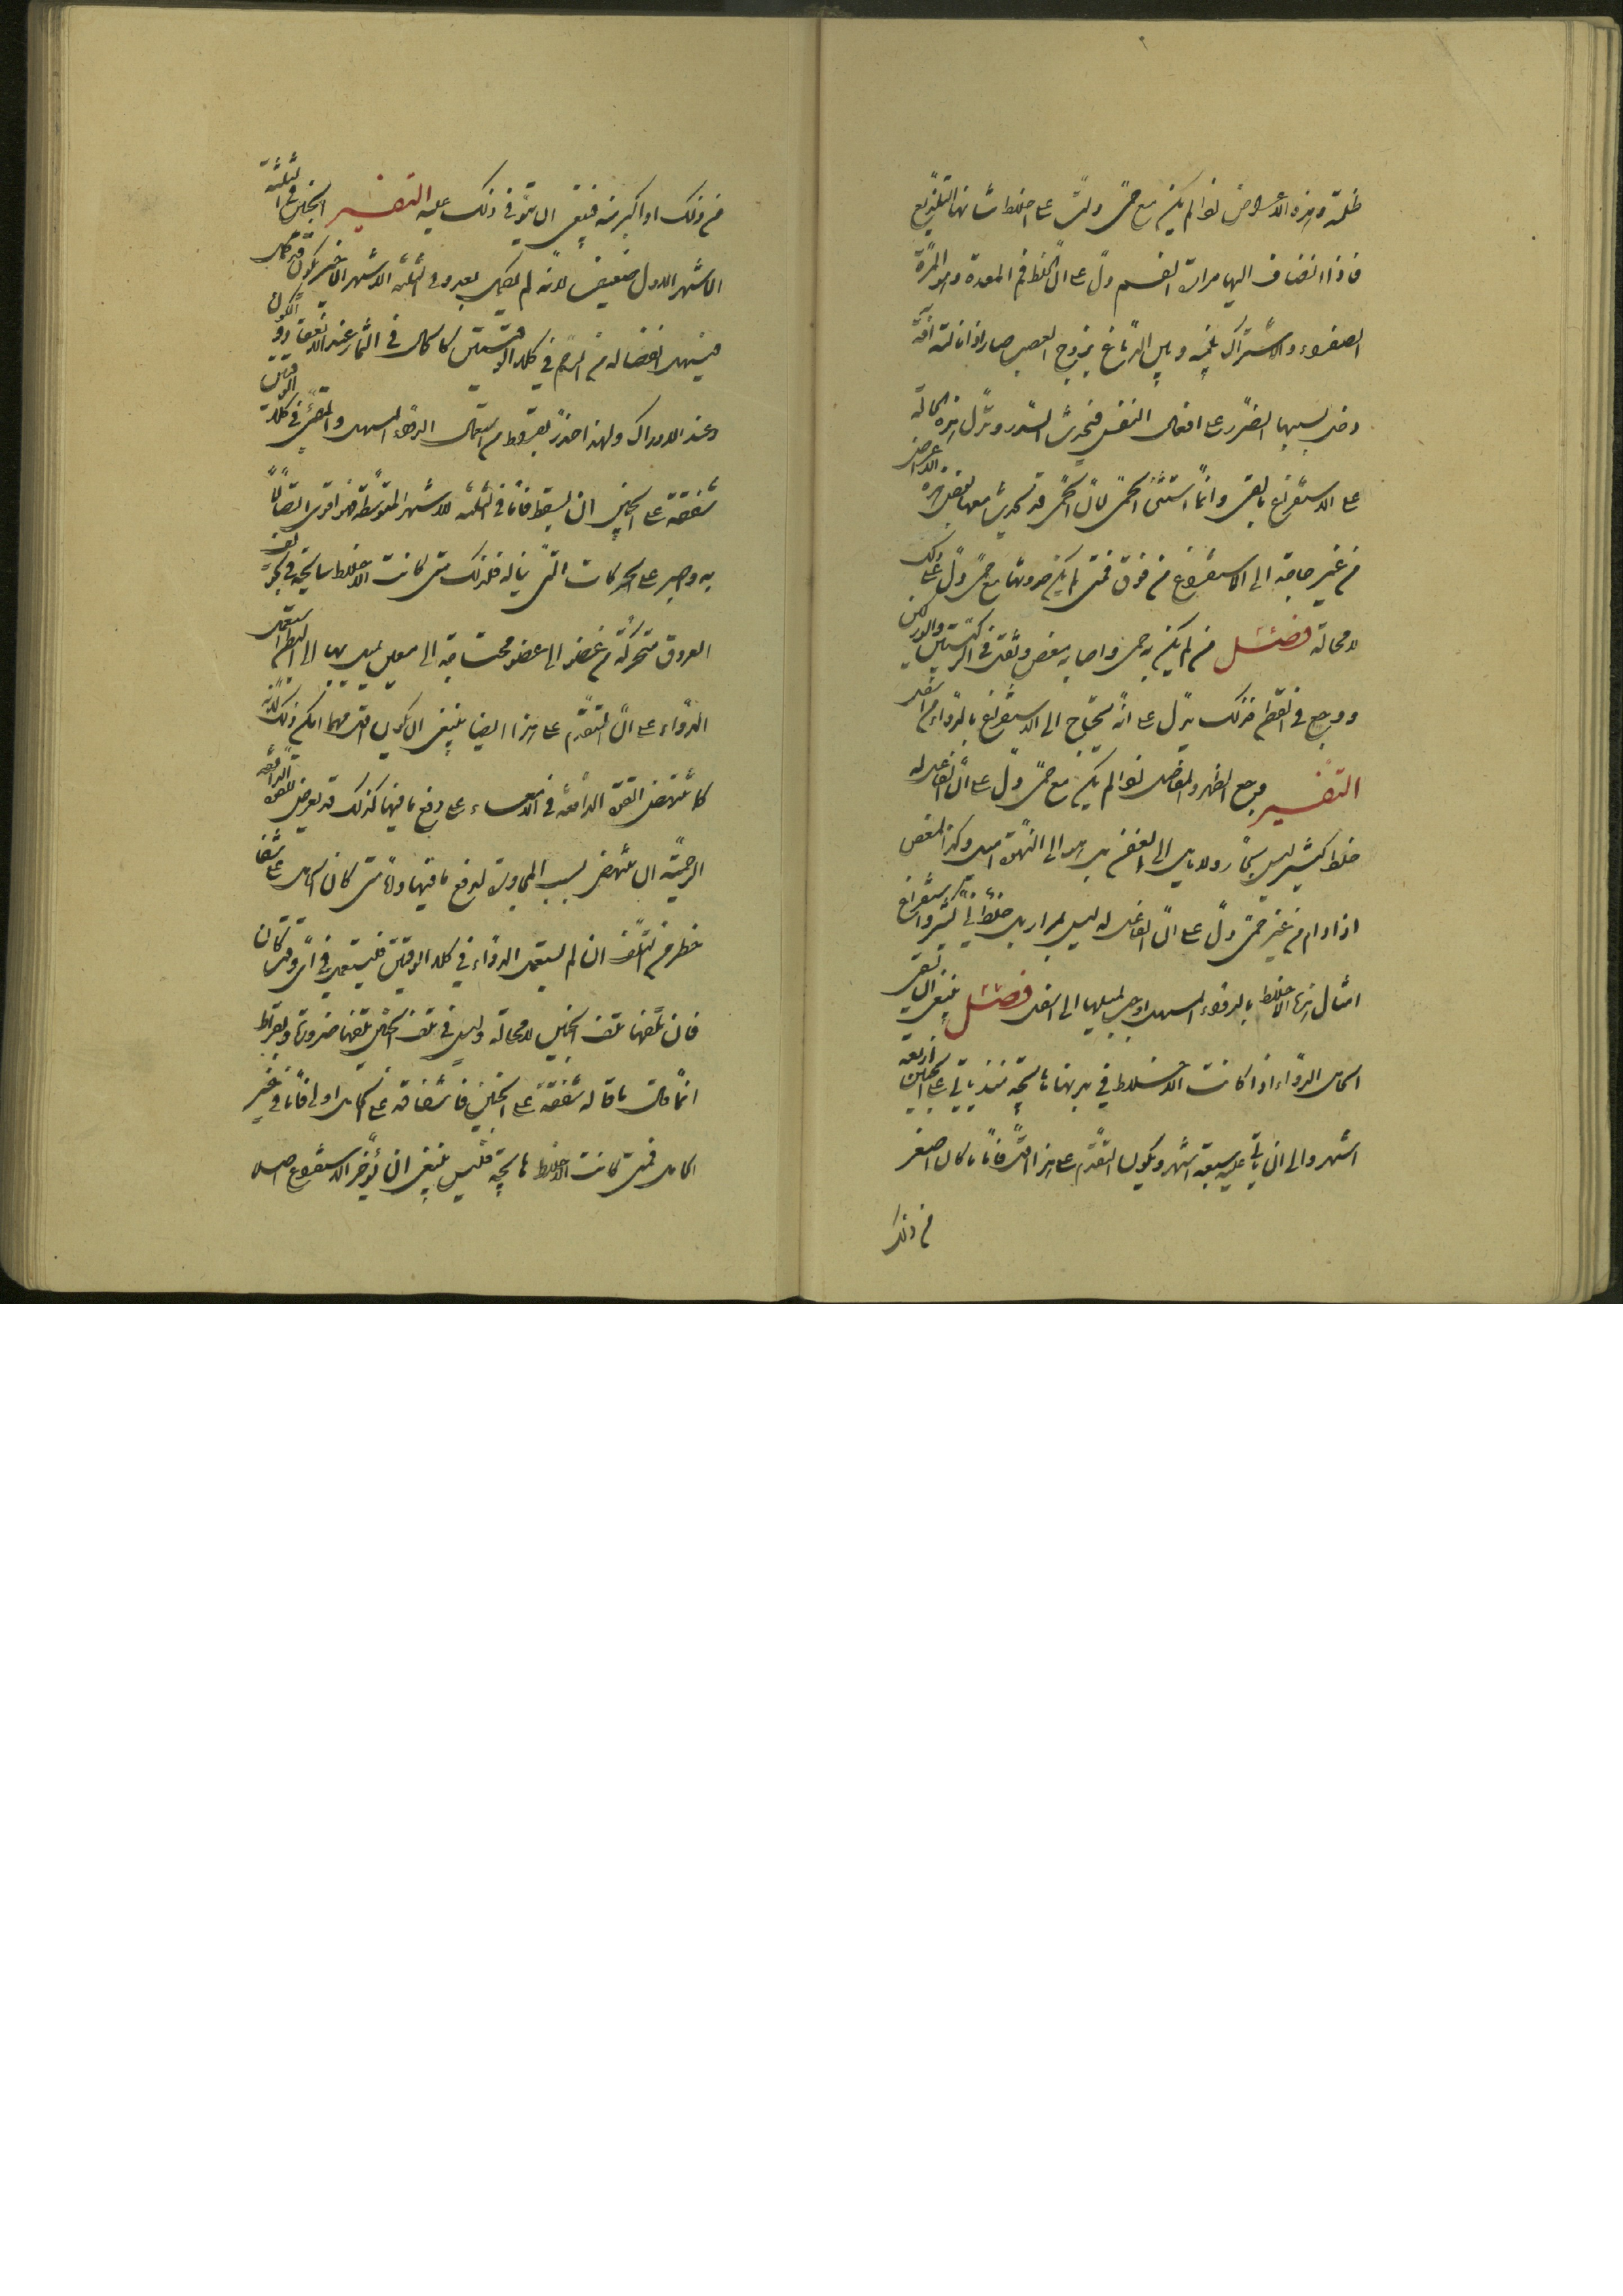 ظلمة وهذه الاعراض اذا لم يكن مع حمى دلت على اخلاط شانها التلذيع
فاذا انضاف اليها مرارة الفم دل على ان الخلط في المعدة وهو المرة
الصفراء والاشتراك بينه وبين الدماغ بزوج العصب صار اذا نالته آفة
دخل بسببها الضرر على افعال النفس فيحدث السدر وتدل هذه الحالة
على الاستفراغ بالقي وانما استثنى الحمى لان الحمى قد تحدث معها بعض هذه الاعراض
من غير حاجة الى الاستفراغ من فوق فمتى لم يكن حدوثها مع حمى دل على ذلك
لا محالة فصل من لم يكن به حمى واصابه مغص وثقل في الركبتين
ووجع في القطن فذلك يدل على انه يحتاج الى الاستفراغ بالدواء من اسفل
التفسير وجع الظهر والمفاصل اذا لم يكن مع حمى دل على ان الفاعل له
خلط كثير ليس بحار ولا مايل الى العفن بل هو الى النهوة اميل وكذا المغص
اذا دام من غير حمى دل على ان الفاعل له ليس بمرار بل خلط ني كثير واستفراغ
امثال هذه الاخلاط بالدواء المسهل اوجب لميلها الى اسفل فصل ينبغي ان تسقى
الحامل الدواء اذا كانت الاخلاط في بدنها هايجة منذ ياتي على الجنين اربعة
اشهر والى ان ياتي عليه سبعة اشهر ويكون التقدم على هذا اقل فاما ما كان اصغر
من ذلك
من ذلك او اكبر منه فينبغي ان يتوقى ذلك عليه التفسير الجنين في الثلثة
الاشهر الاول ضعيف لانه لم يكمل بعد وفي الثلثة الاشهر الاخير يكون قد ثقل
فيسهل انفصاله من الرحم في كلا الوقتين كالحال في الثمار عند الانعقاد
وعند الادراك ولهذا حذر بقراط من استعمال الدواء المسهل والمقيئ في كلا الوقتين
شفقة على الجنين ان يسقط فاما في الثلثة الاشهر المتوسطة فهو اقوى اتصالا
به واصبر على الحركات التي يناله فلذلك متى كانت الاخلاط سايحة في تجويف
العروق متحركة من عضو الى عضو محتاجة الى معين يميل بها الى البطن استعمل
الدواء على ان التقدم على هذا ايضا ينبغي ان يكون اقل مهما امكن ذلك لانه
كما تنهض القوة الدافعة في الامعاء على دفع ما فيها كذلك قد يعرض للقوة الدافعة
الرحمية ان تنهض بسبب المجاورة لدفع ما فيها واما متى كان الحامل على شفا
خطر من التلف ان لم يستعمل الدواء في كلا الوقتين فليستعمل في اي وقت كان
فان تلفها تلف الجنين لا محالة وليس في تلف الجنين تلفها ضرورة وبقراط
انما قال ما قاله شفقة على الجنين فاشفاقه على الحامل اولى فاما في غير
الحامل فمتى كانت الاخلاط هايجة فليس ينبغي ان يؤخر الاستفراغ اصلا